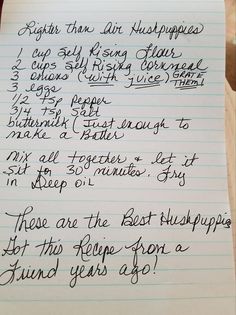 Lighter than Air Hushpuppies
1 cup Self Rising Flour
2 cups Self Rising Cornmeal
3 onions ("with juice) GRATE THEM!
3 eggs
1/2 tsp Pepper
3/4 tsp Salt
buttermilk (Just enough to
make a Batter
Mix all together & let it
sit for 30 minutes. Fry
in Deep oil
These are the Best Hushpuppies
Got this Recipe from a
Friend years ago!